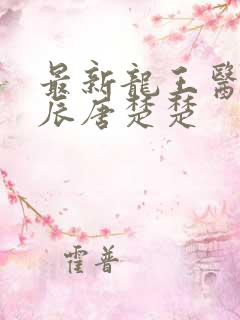 最新龍王醫
辰唐楚楚
霍普